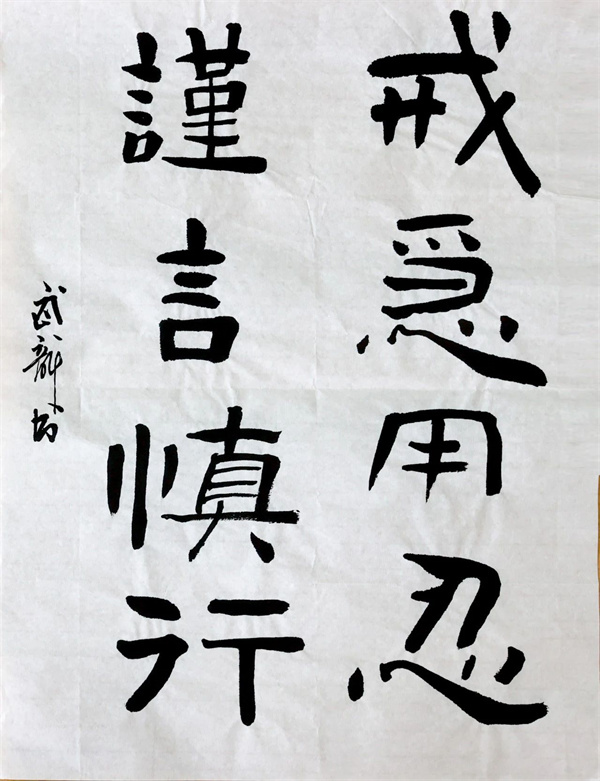 戒急用忍
謹言慎行
武龍书